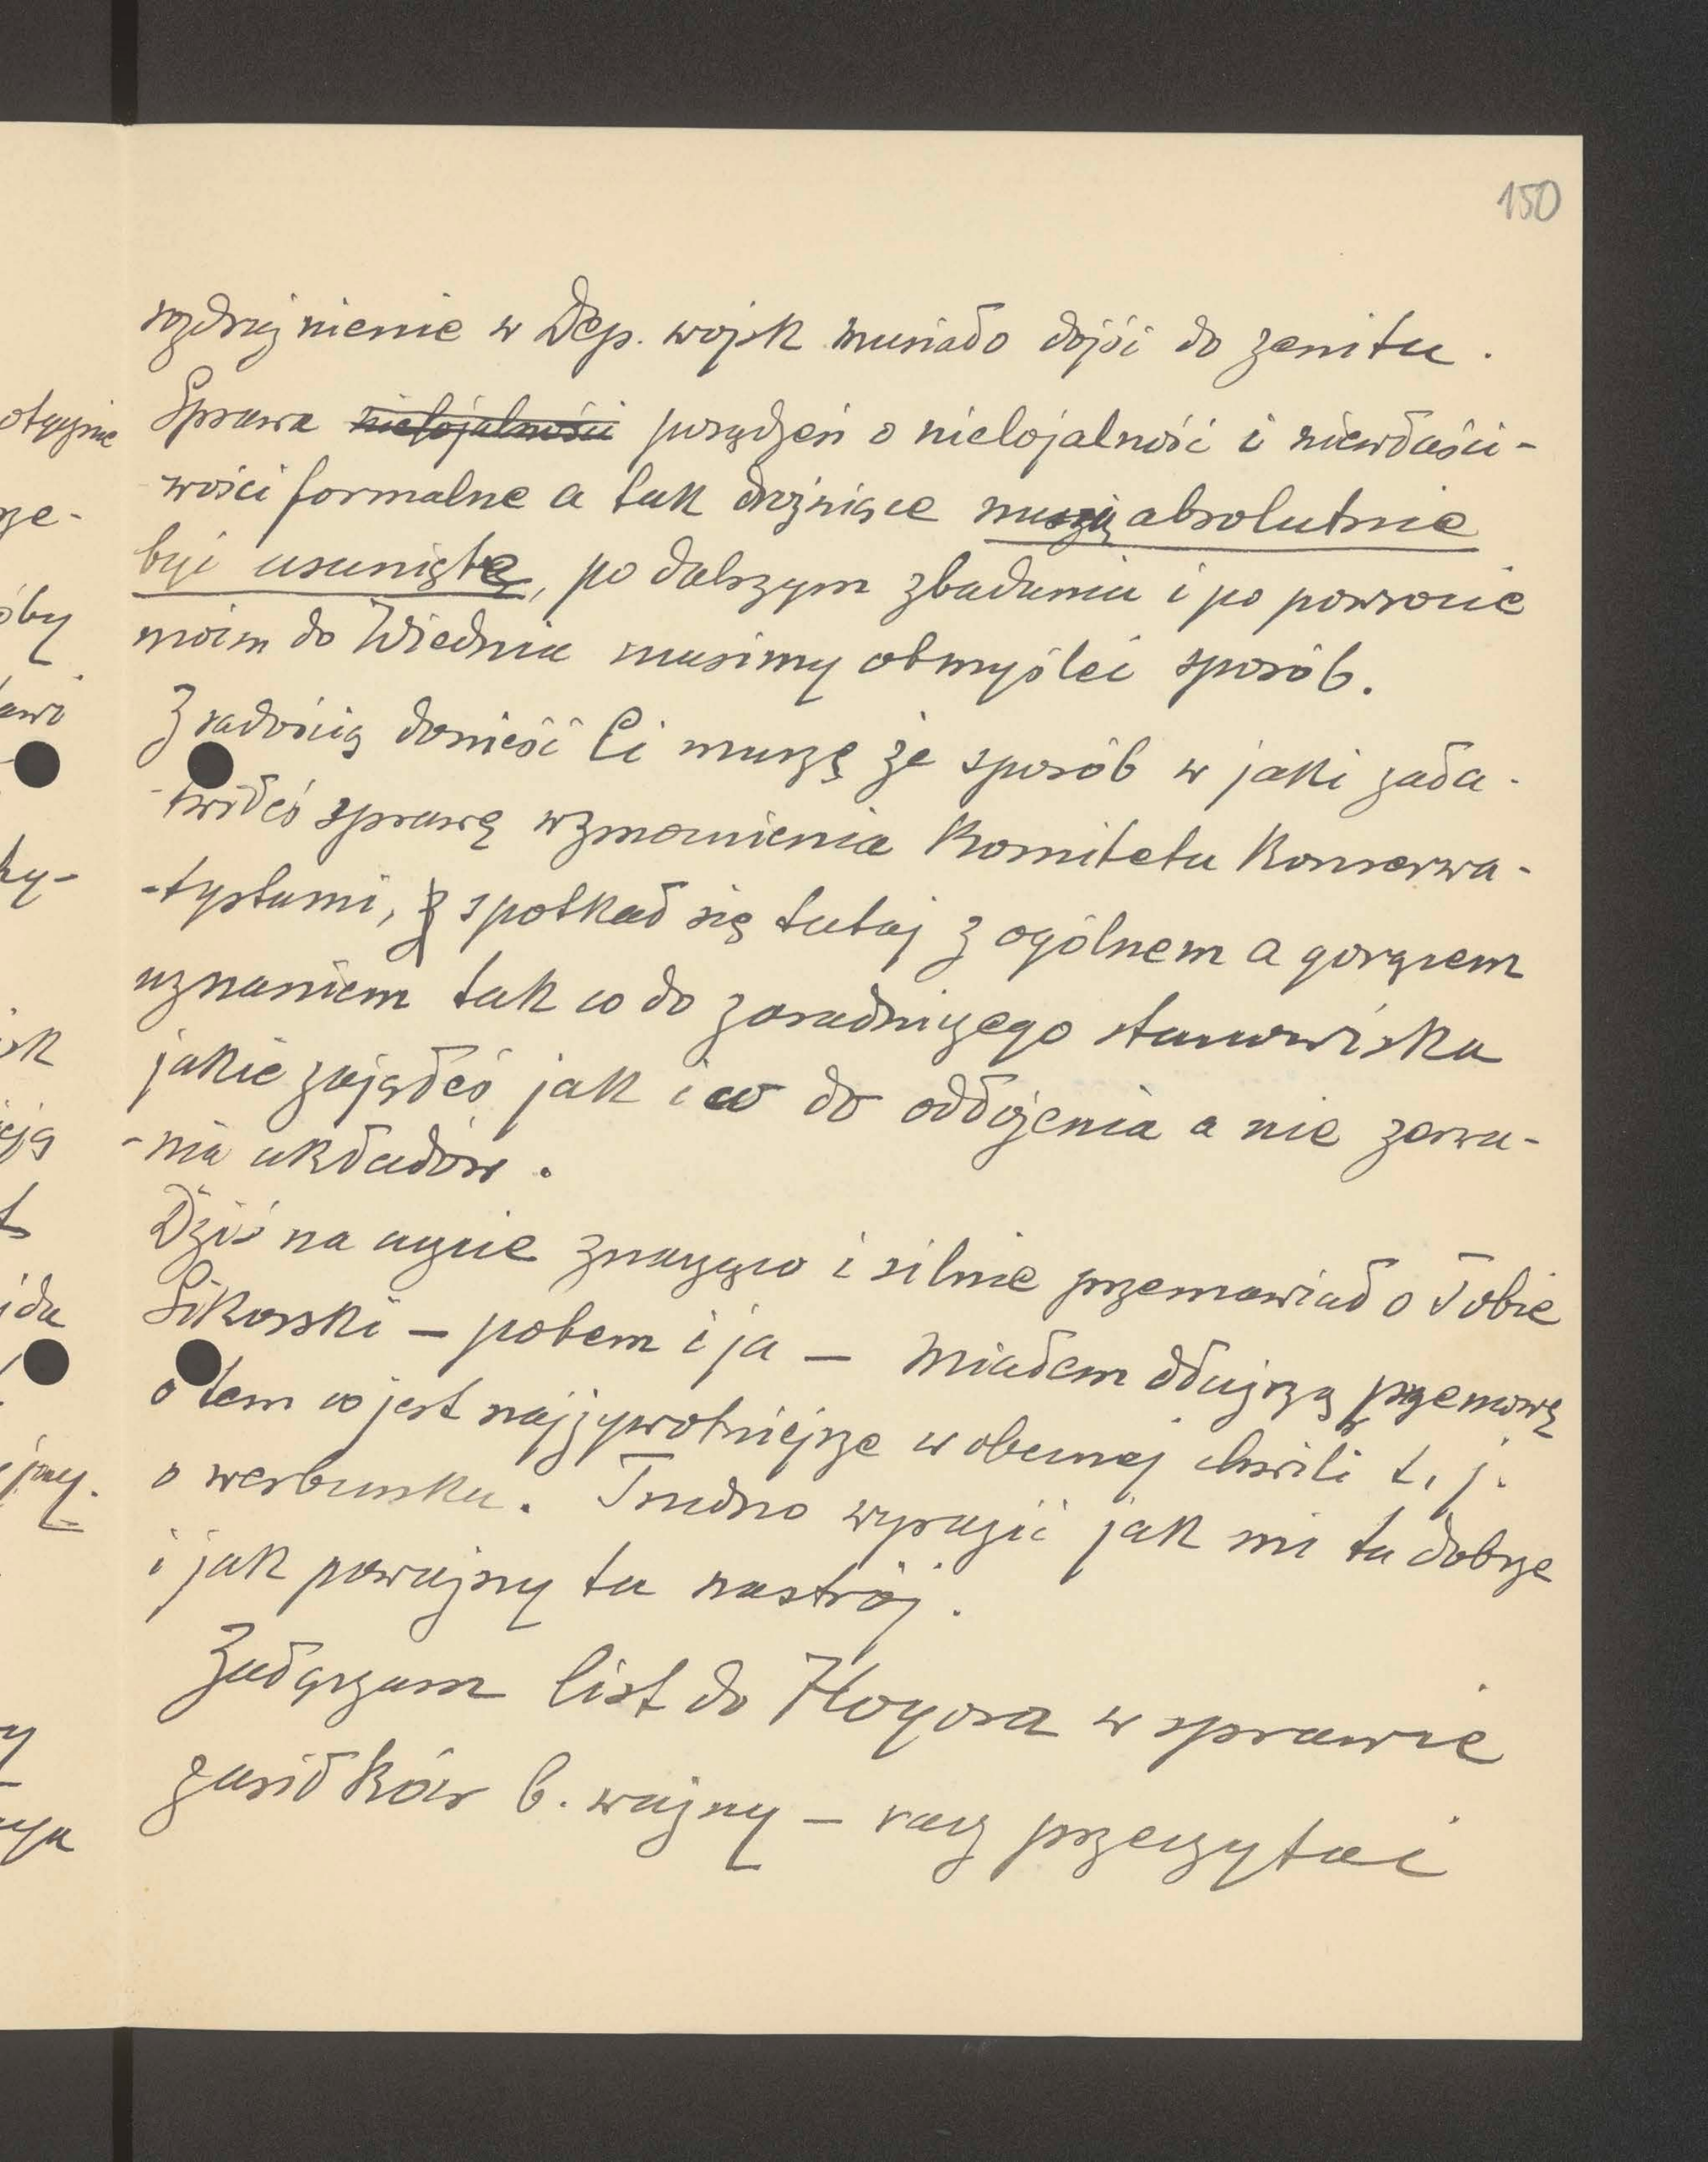 150
rozdrażnienie w Dep. wojsk musiało dojść do zenitu.
Sprawa nielojalności posądzeń o nielojalność i niewłaści-
-wości formalne a tak drażniące muszą absolutnie
być usunięte, po dalszym zbadaniu i po powrocie
moim do Wiednia musimy obmyśleć sposób.
Z radością donieść Ci muszę że sposób w jaki zała-
-twiłeś sprawę wzmocnienia Komitetu Konserwa-
-tystami, spotkał się tutaj z ogólnem a gorącem
uznaniem tak co do zasadniczego stanowiska
jakie zająłeś jak i co do odłożenia a nie zerwa-
-nia układów.
Dziś na uczcie znacząco i silnie przemawiał o Tobie
Sikorski – potem i ja – miałem dłuższą przemowę
o tem co jest najżywotniejsze w obecnej chwili t. j.
o werbunku. Trudno wyrazić jak mi tu dobrze
i jak poważny tu nastrój.
Załączam list do Hoyosa w sprawie
zasiłków b. ważny – racz przeczytać
otycznie
oby